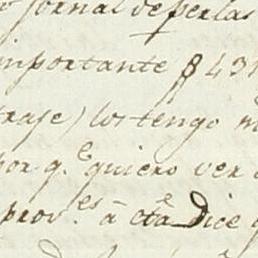 jornal de perlas
importante $ 431
traje) los tengo
por q.e quiero ver
prov.es à ota Dice